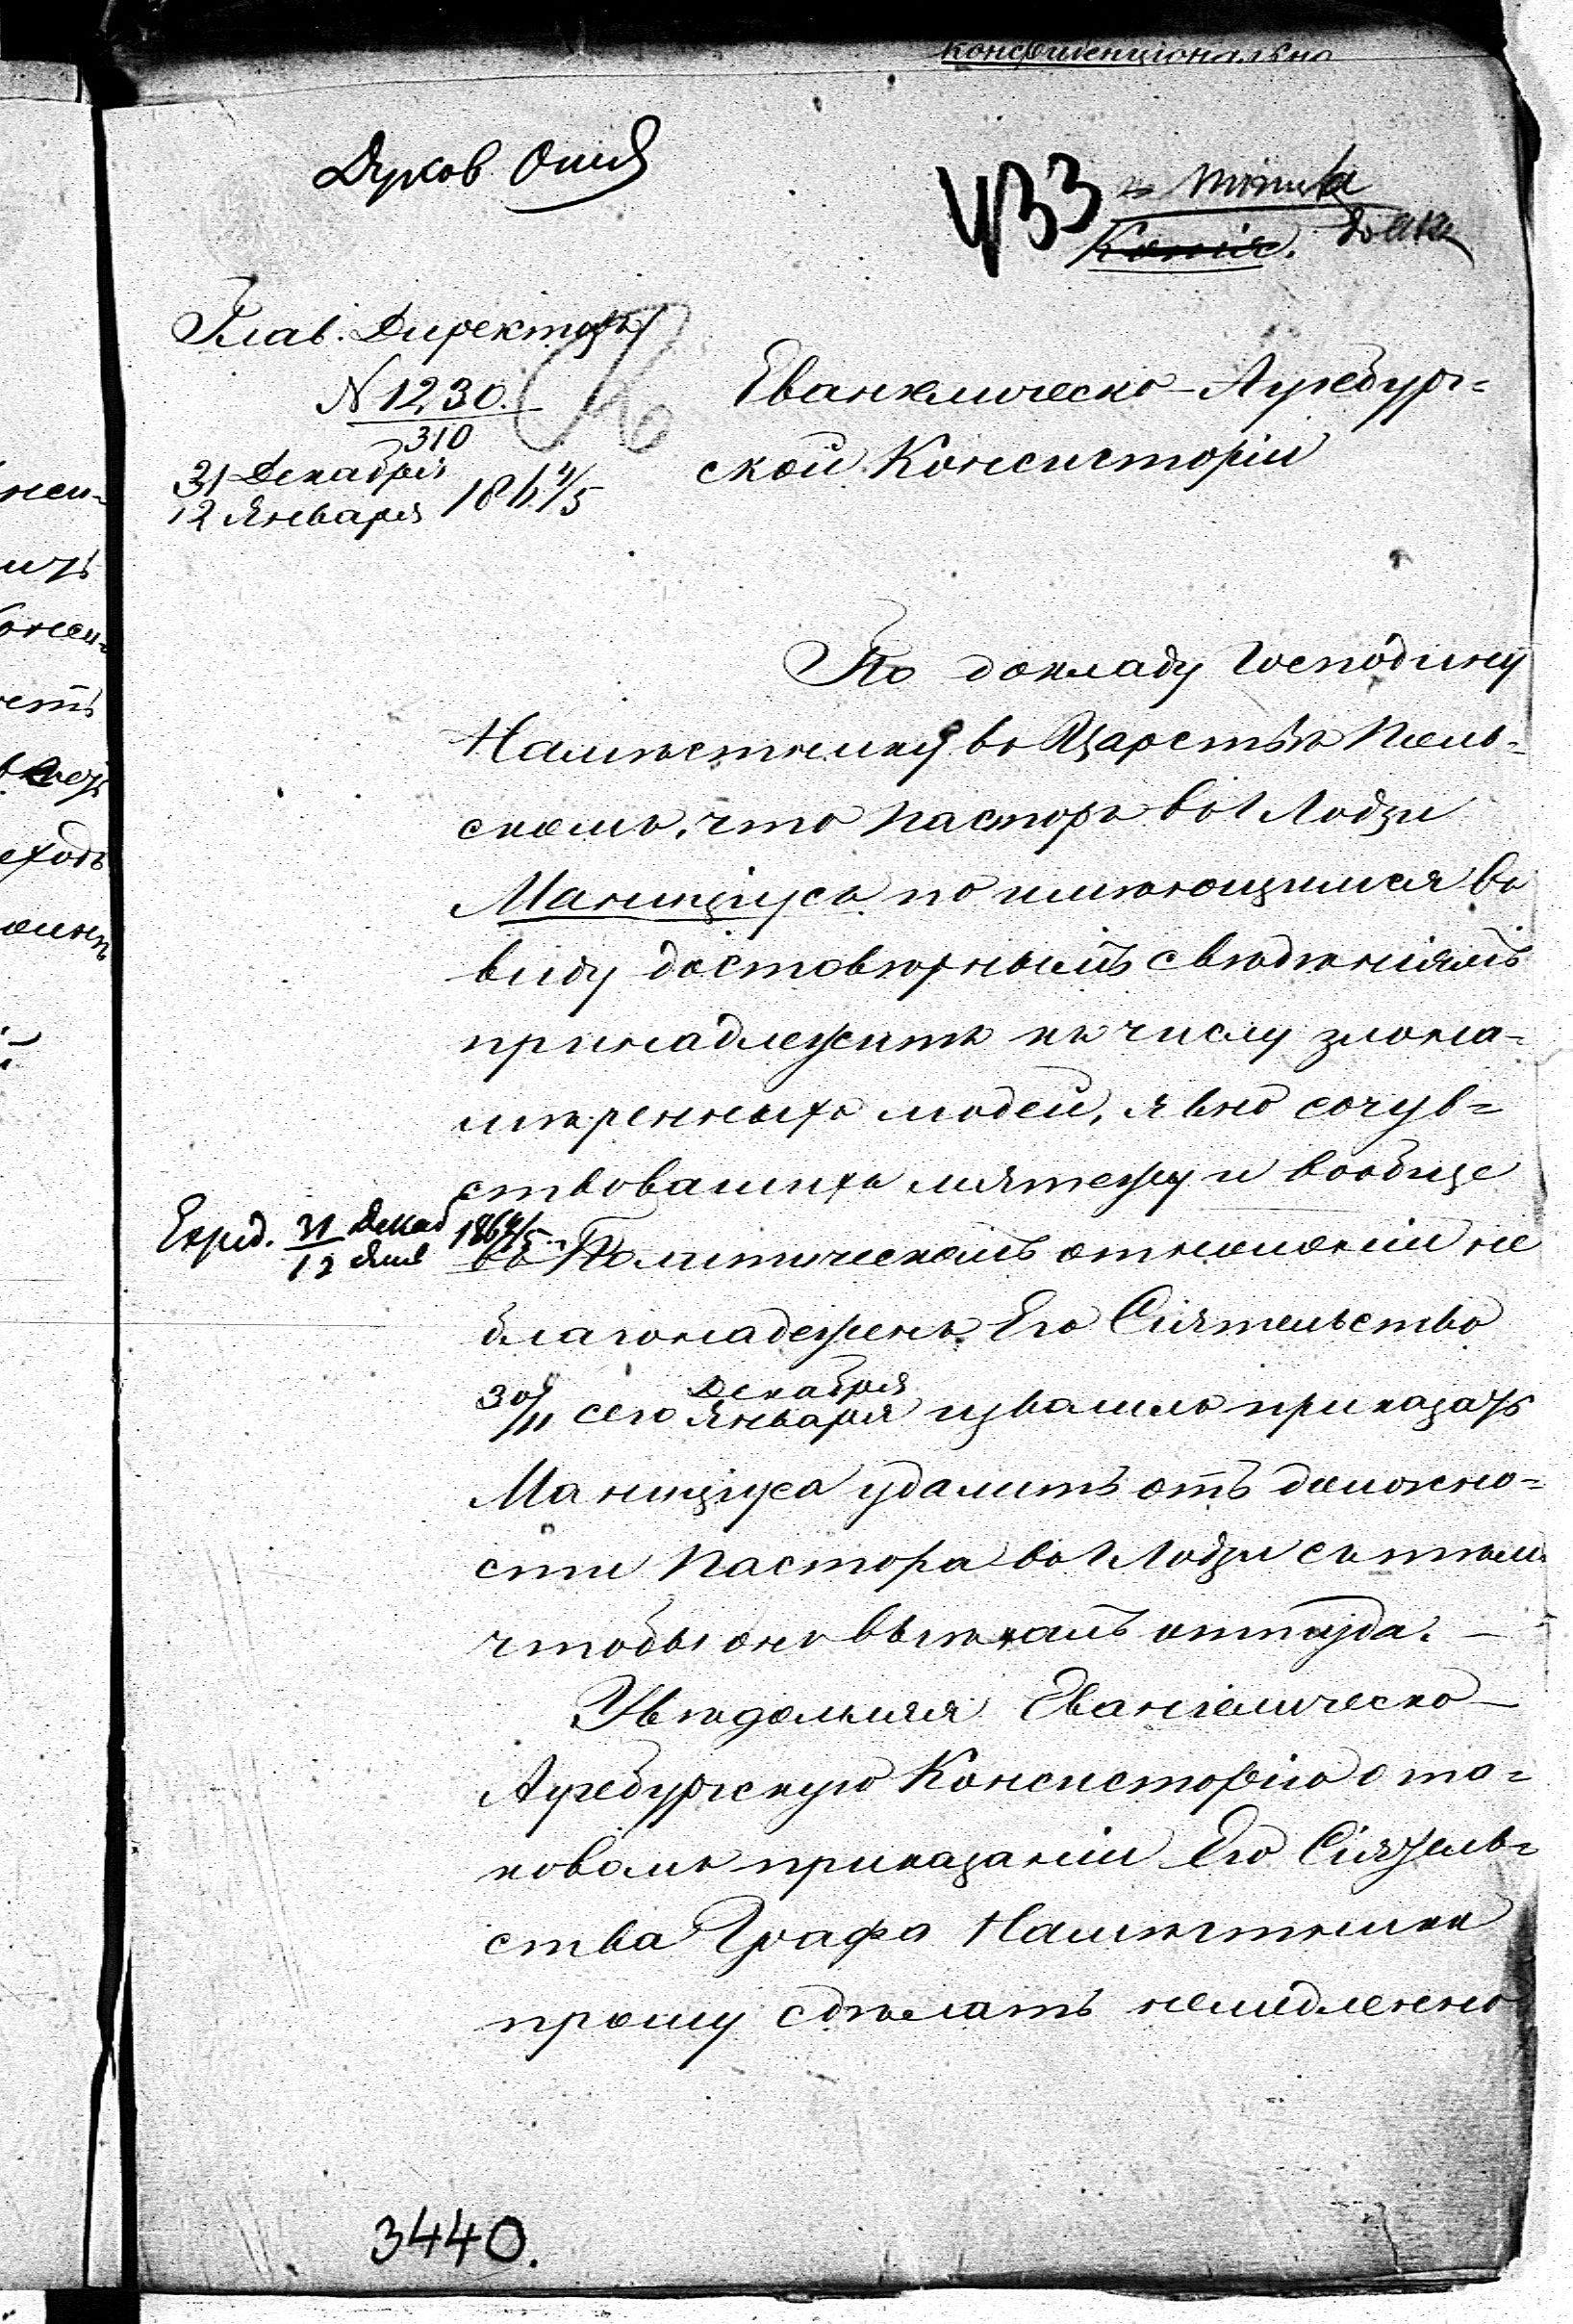 Конфиденціонально
Духов. Отд
433 Minuta
Копія. до акт
Глав. Директоръ
N 1230.
310
31 Декабря
12 Января 1864/5
Евангелическо-Аугсбург=
ской Консисторіи
По докладу Господину
Намѣстнику въ Царствѣ Поль-
скомъ, что Пасторъ въ г. Лодзи
Маницiусъ по имѣющимся въ
виду достовѣрнымъ свѣдѣніямъ
принадлежитъ къ числу злона-
мѣренныхъ людей, явно сочув=
ствовавшихъ мятежу и вообще
Exped. 31 Декаб 1864/5
12 Янв
въ Политическомъ отношеніи не
благонадеженъ, Его Сіятельство
30/11 сего Декабря
Января изволилъ приказать
Маницiуса удалить отъ должно=
сти Пастора въ г. Лодзи съ тѣмъ
чтобы онъ выѣхалъ оттуда. —
Увѣдомляя Евангелическо—
Аугсбургскую Консисторію о та=
ковомъ приказаніи Его Сіятель=
ства Графа Намѣстника
прошу сдѣлать немедленно
3440.